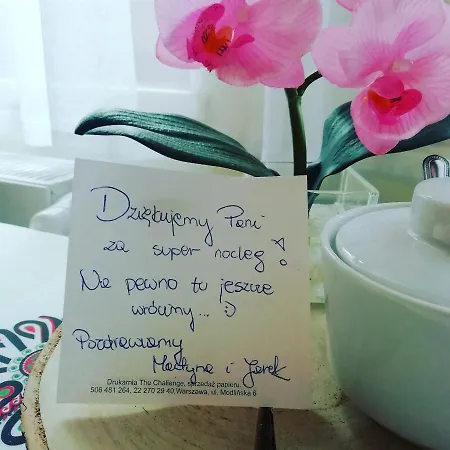 Dziękujemy Pani
za super nocleg!
Na pewno tu jeszcze
wrócimy... :)
Pozdrawiamy
Martyna i Jarek
Drukarnia The Challenge, sprzedaż papieru
506 481 264, 22 270 29 40,Warszawa, ul. Modlińska 6